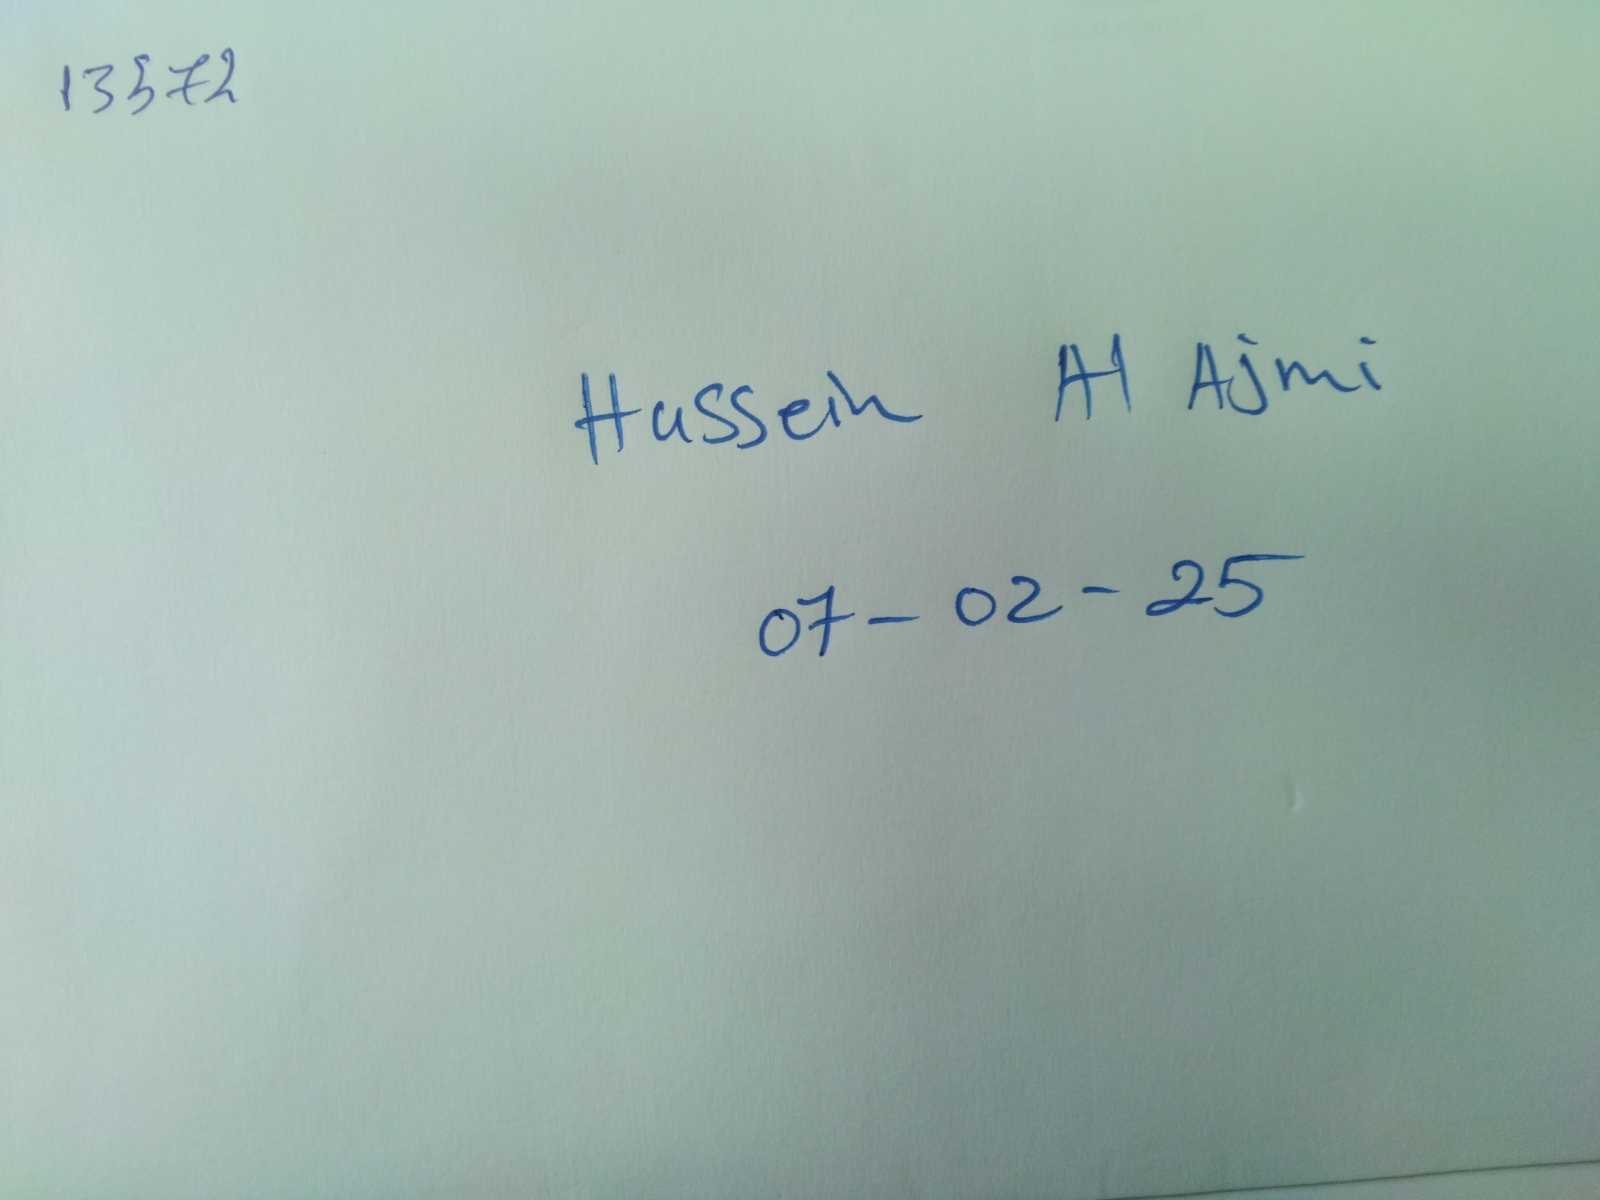 13572
Hussein Al Ajmi
07-02-25